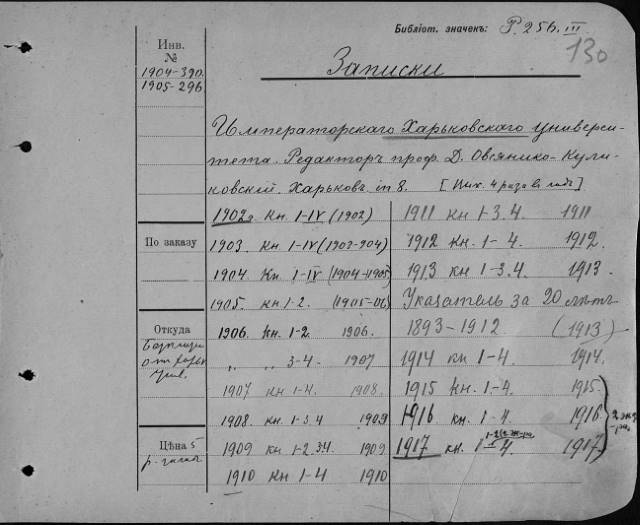 Библіот. значекъ: P. 256. III
130
Инв.
№
1904-390.
1905-296
Записки
Императорскаго Харьковскаго универси-
тета. Редакторъ проф. Д. Овсянико-Кули-
ковскій. Харьковъ. in 8. [Вых. 4 раза въ годъ]
1902г. кн. I-IV (1902)
По заказу
1903. кн. I-IV (1903-904)
1904. Кн. I-IV (1904-1905)
1905. кн 1-2. (1905-06)
Откуда
отъ Харьк.
Унив.
1906. кн. 1-2. 1906.
„ „ 3-4. 1907
1907 кн 1-4. 1908.
1908. кн. 1-3.4 1909
Цѣна 5
1909 кн 1-2.3.4. 1909
1910 кн 1-4 1910
1911 кн 1-3.4. 1911
1912 кн. 1-4. 1912.
1913 кн 1-3.4. 1913.
Указатель за 20 лѣтъ
1893-1912 (1913)
1914 кн 1-4. 1914.
1915 кн. 1-4. 1915.
1916 кн. 1-4. 1916
2 экз.
1917 кн. 1-4. 1917